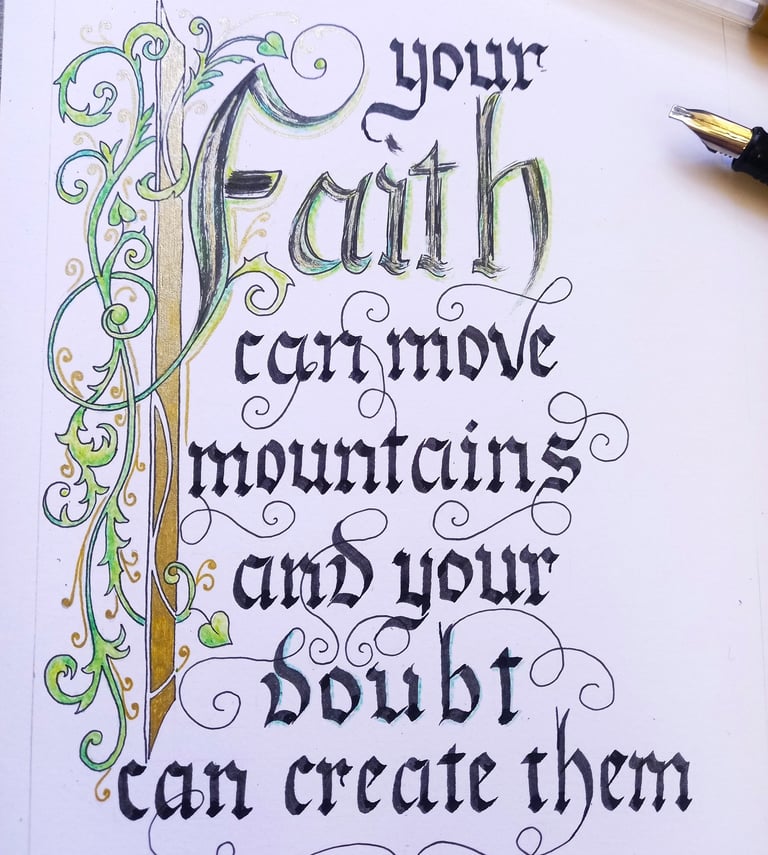 your
Faith
can move
mountains
and your
doubt
can create them